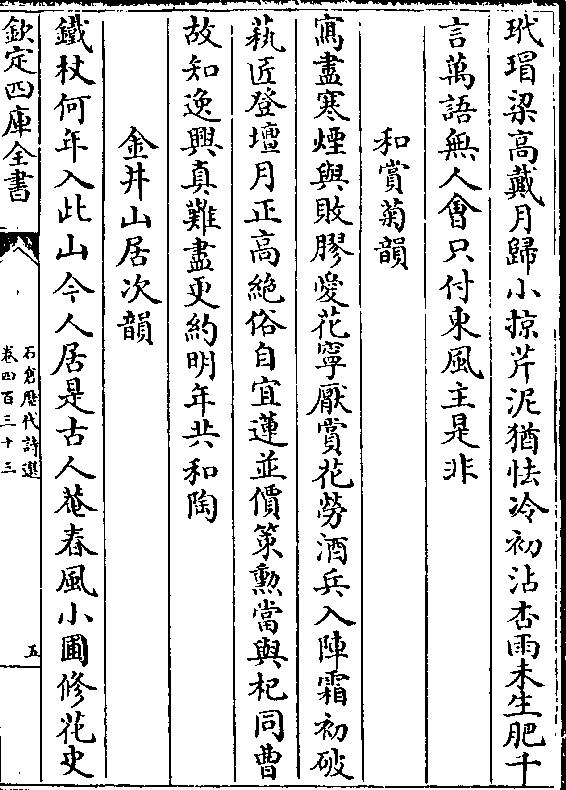 玳瑁梁高戴月歸小掠芹泥猶怯冷初沾杏雨未生肥千
言萬語無人會只付東風主是非
和賞菊韻
寫盡寒煙與敗膠愛花寧厭賞花勞酒兵入陣霜初破
蓺匠登壇月正高絶俗自宜蓮並價策勲當與杞同曹
故知逸興真難盡更約明年共和陶
金井山居次韻
鐵杖何年入此山今人居是古人菴春風小圃修花史
欽定四庫全書
石倉歴代詩選
卷四百三十三
五